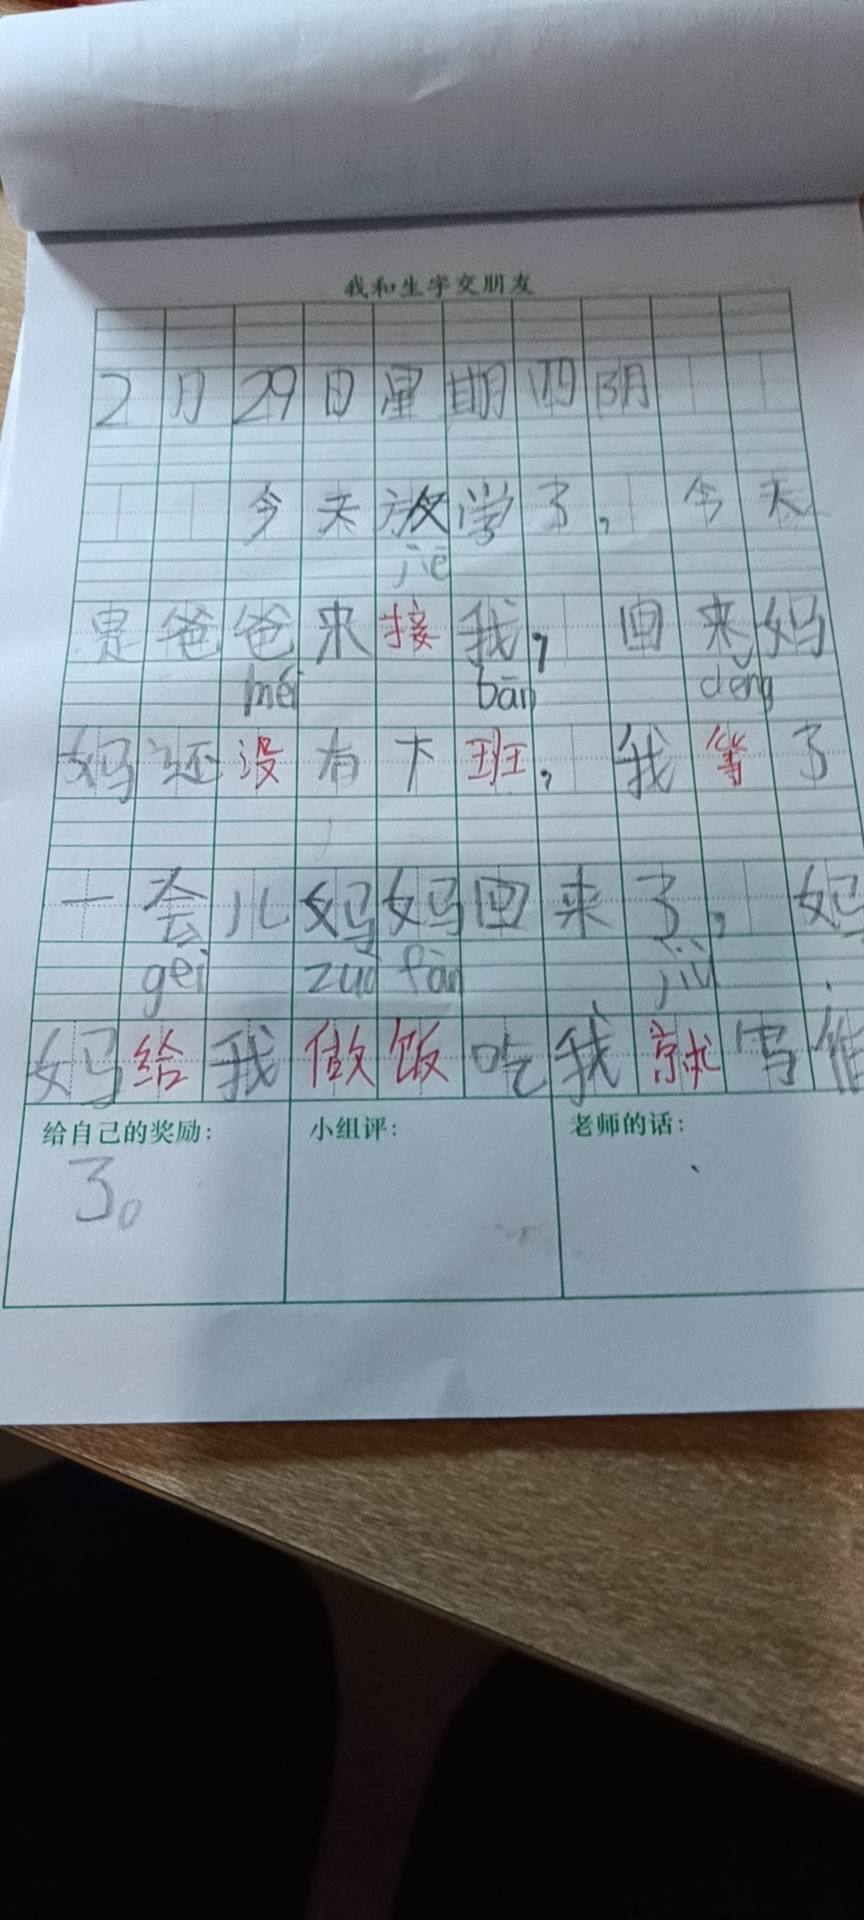 我和生字交朋友
2月29日星期四阴
今天放学了，今天
jiē
是爸爸来接我，回来妈
méi bān děng
妈还没有下班，我等了
一会儿妈妈回来了，妈
gei zuò fàn jiù
妈给我做饭吃我就写作
给自己的奖励： 小组评： 老师的话：
了。